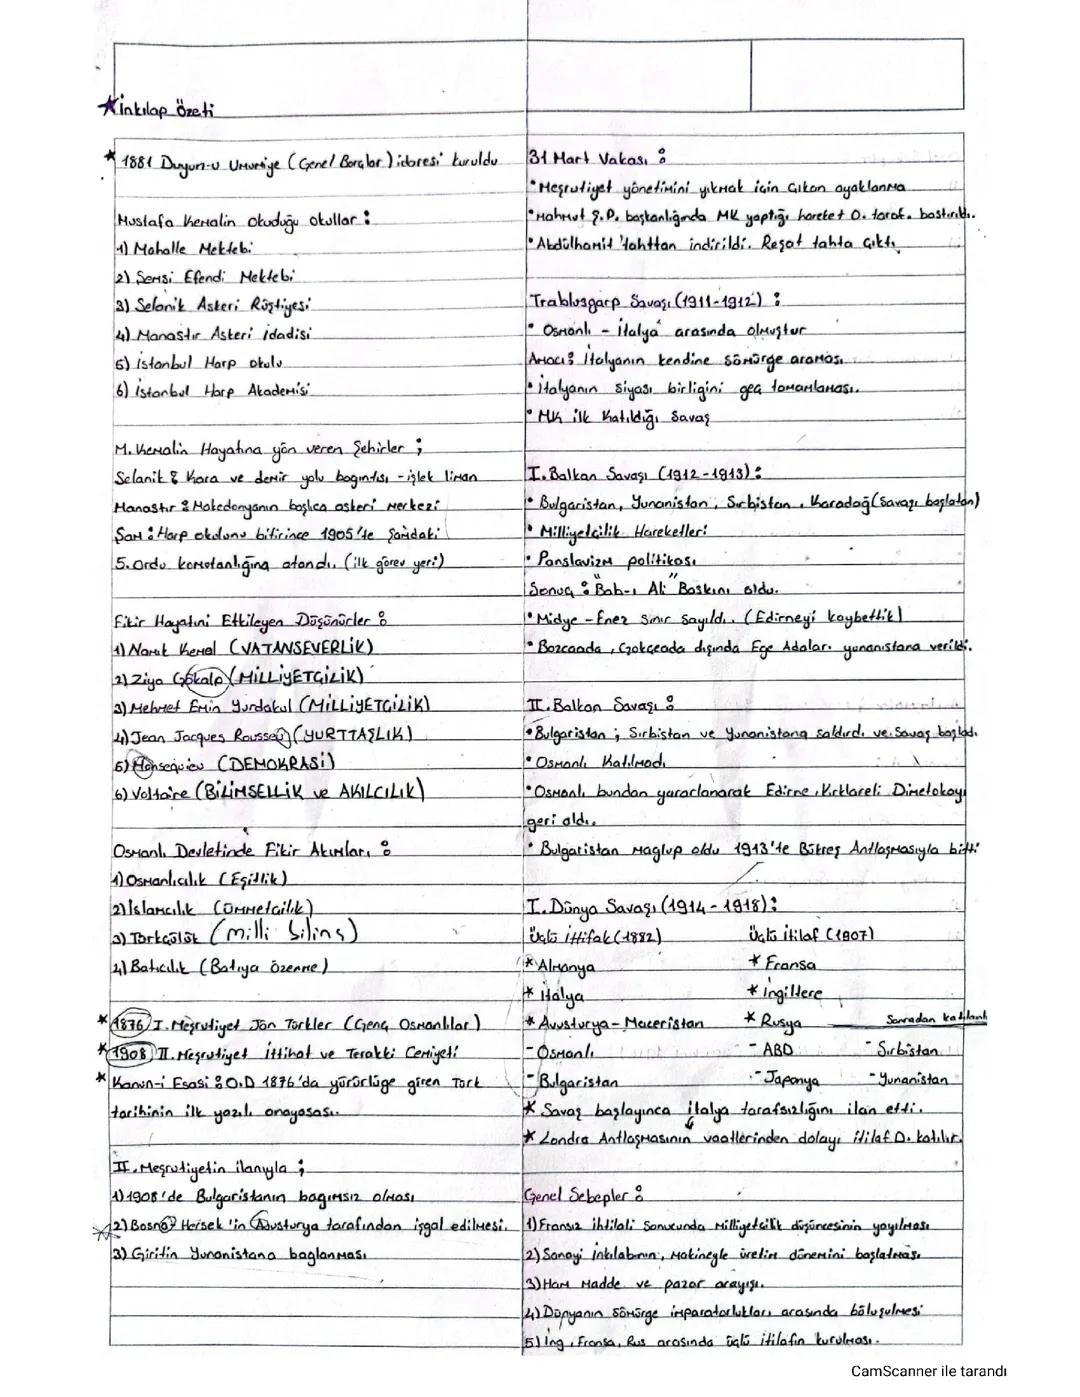 ★ İnkılap Özeti
★ 1881 Duyun-u Umumiye (Genel Borçlar) idaresi kuruldu
Mustafa Kemalin Okuduğu okullar :
1) Mahalle Mektebi
2) Şemsi Efendi Mektebi
3) Selanik Askeri Rüştiyesi
4) Manastır Askeri İdadisi
5) İstanbul Harp Okulu
6) İstanbul Harp Akademisi
M. Kemalin Hayatına yön veren Şehirler ;
Selanik : Kara ve demir yolu bağıntısı - işlek liman
Manastır : Makedonyanın başlıca askeri merkezi
Şam : Harp okulunu bitirince 1905'te Şamdaki
5. Ordu komutanlığına atandı. (ilk görev yeri)
Fikir Hayatını Etkileyen Düşünürler :
1) Namık Kemal (VATANSEVERLİK)
2) Ziya Gökalp (MİLLİYETÇİLİK)
3) Mehmet Emin Yurdakul (MİLLİYETÇİLİK)
4) Jean Jacques Rousseu (YURTTAŞLIK)
5) Monsequieu (DEMOKRASİ)
6) Voltaire (BİLİMSELLİK ve AKILCILIK)
Osmanlı Devletinde Fikir Akımları :
1) Osmanlıcılık (Eşitlik)
2) İslamcılık (Ümmetçilik)
3) Türkçülük (milli bilinç)
4) Batıcılık (Batıya özenme)
★ 1876 I. Meşrutiyet Jön Türkler (Genç Osmanlılar)
★ 1908 II. Meşrutiyet İttihat ve Terakki Cemiyeti
★ Kanun-i Esasi : O.D 1876'da yürürlüğe giren Türk
tarihinin ilk yazılı anayasası.
II. Meşrutiyetin ilanıyla ;
1) 1908'de Bulgaristanın bağımsız olması
★ 2) Bosna Hersek'in Avusturya tarafından işgal edilmesi.
3) Giritin Yunanistana bağlanması
31 Mart Vakası :
• Meşrutiyet yönetimini yıkmak için çıkan ayaklanma
• Mahmut Ş.P. başkanlığında MK yaptığı hareket O. taraf. bastırıldı.
• Abdülhamit tahttan indirildi. Reşat tahta çıktı
Trablusgarp Savaşı (1911-1912) :
• Osmanlı - İtalya arasında olmuştur
Amacı : İtalyanın kendine sömürge araması.
• İtalyanın siyası birliğini geç tamamlaması.
• MK ilk Katıldığı Savaş
I. Balkan Savaşı (1912-1913) :
• Bulgaristan, Yunanistan, Sırbistan, Karadağ (Savaşı başlatan)
• Milliyetçilik Hareketleri
• Panslavizm politikası
Sonuç : "Bab-ı Ali" Baskını oldu.
• Midye - Enez Sınır Sayıldı. (Edirneyi kaybettik)
• Bozcaada, Gökçeada dışında Ege Adaları yunanistana verildi.
II. Balkan Savaşı :
• Bulgaristan ; Sırbistan ve Yunanistana saldırdı ve savaş başladı
• Osmanlı Katılmadı
• Osmanlı bundan yararlanarak Edirne, Kırklareli Dimetokayı
geri aldı.
• Bulgaristan mağlup oldu 1913'te Bükreş Antlaşmasıyla bitti
I. Dünya Savaşı (1914-1918) :
Üçlü İttifak (1882) Üçlü İtilaf (1907)
★ Almanya ★ Fransa
★ İtalya ★ İngiltere
★ Avusturya - Macaristan ★ Rusya Sonradan katılanlar
- Osmanlı - ABD - Sırbistan
- Bulgaristan - Japonya - Yunanistan
★ Savaş başlayınca İtalya tarafsızlığını ilan etti.
★ Londra Antlaşmasının vaatlerinden dolayı İtilaf D. katılır.
Genel Sebepler :
1) Fransız ihtilali Sonucunda milliyetçilik düşüncesinin yayılması
2) Sanayi inkılabının, Makineyle üretim dönemini başlatması
3) Ham Madde ve pazar arayışı.
4) Dünyanın Sömürge imparatorlukları arasında bölüşülmesi
5) İng, Fransa, Rus arasında üçlü itilafın kurulması.
CamScanner ile tarandı